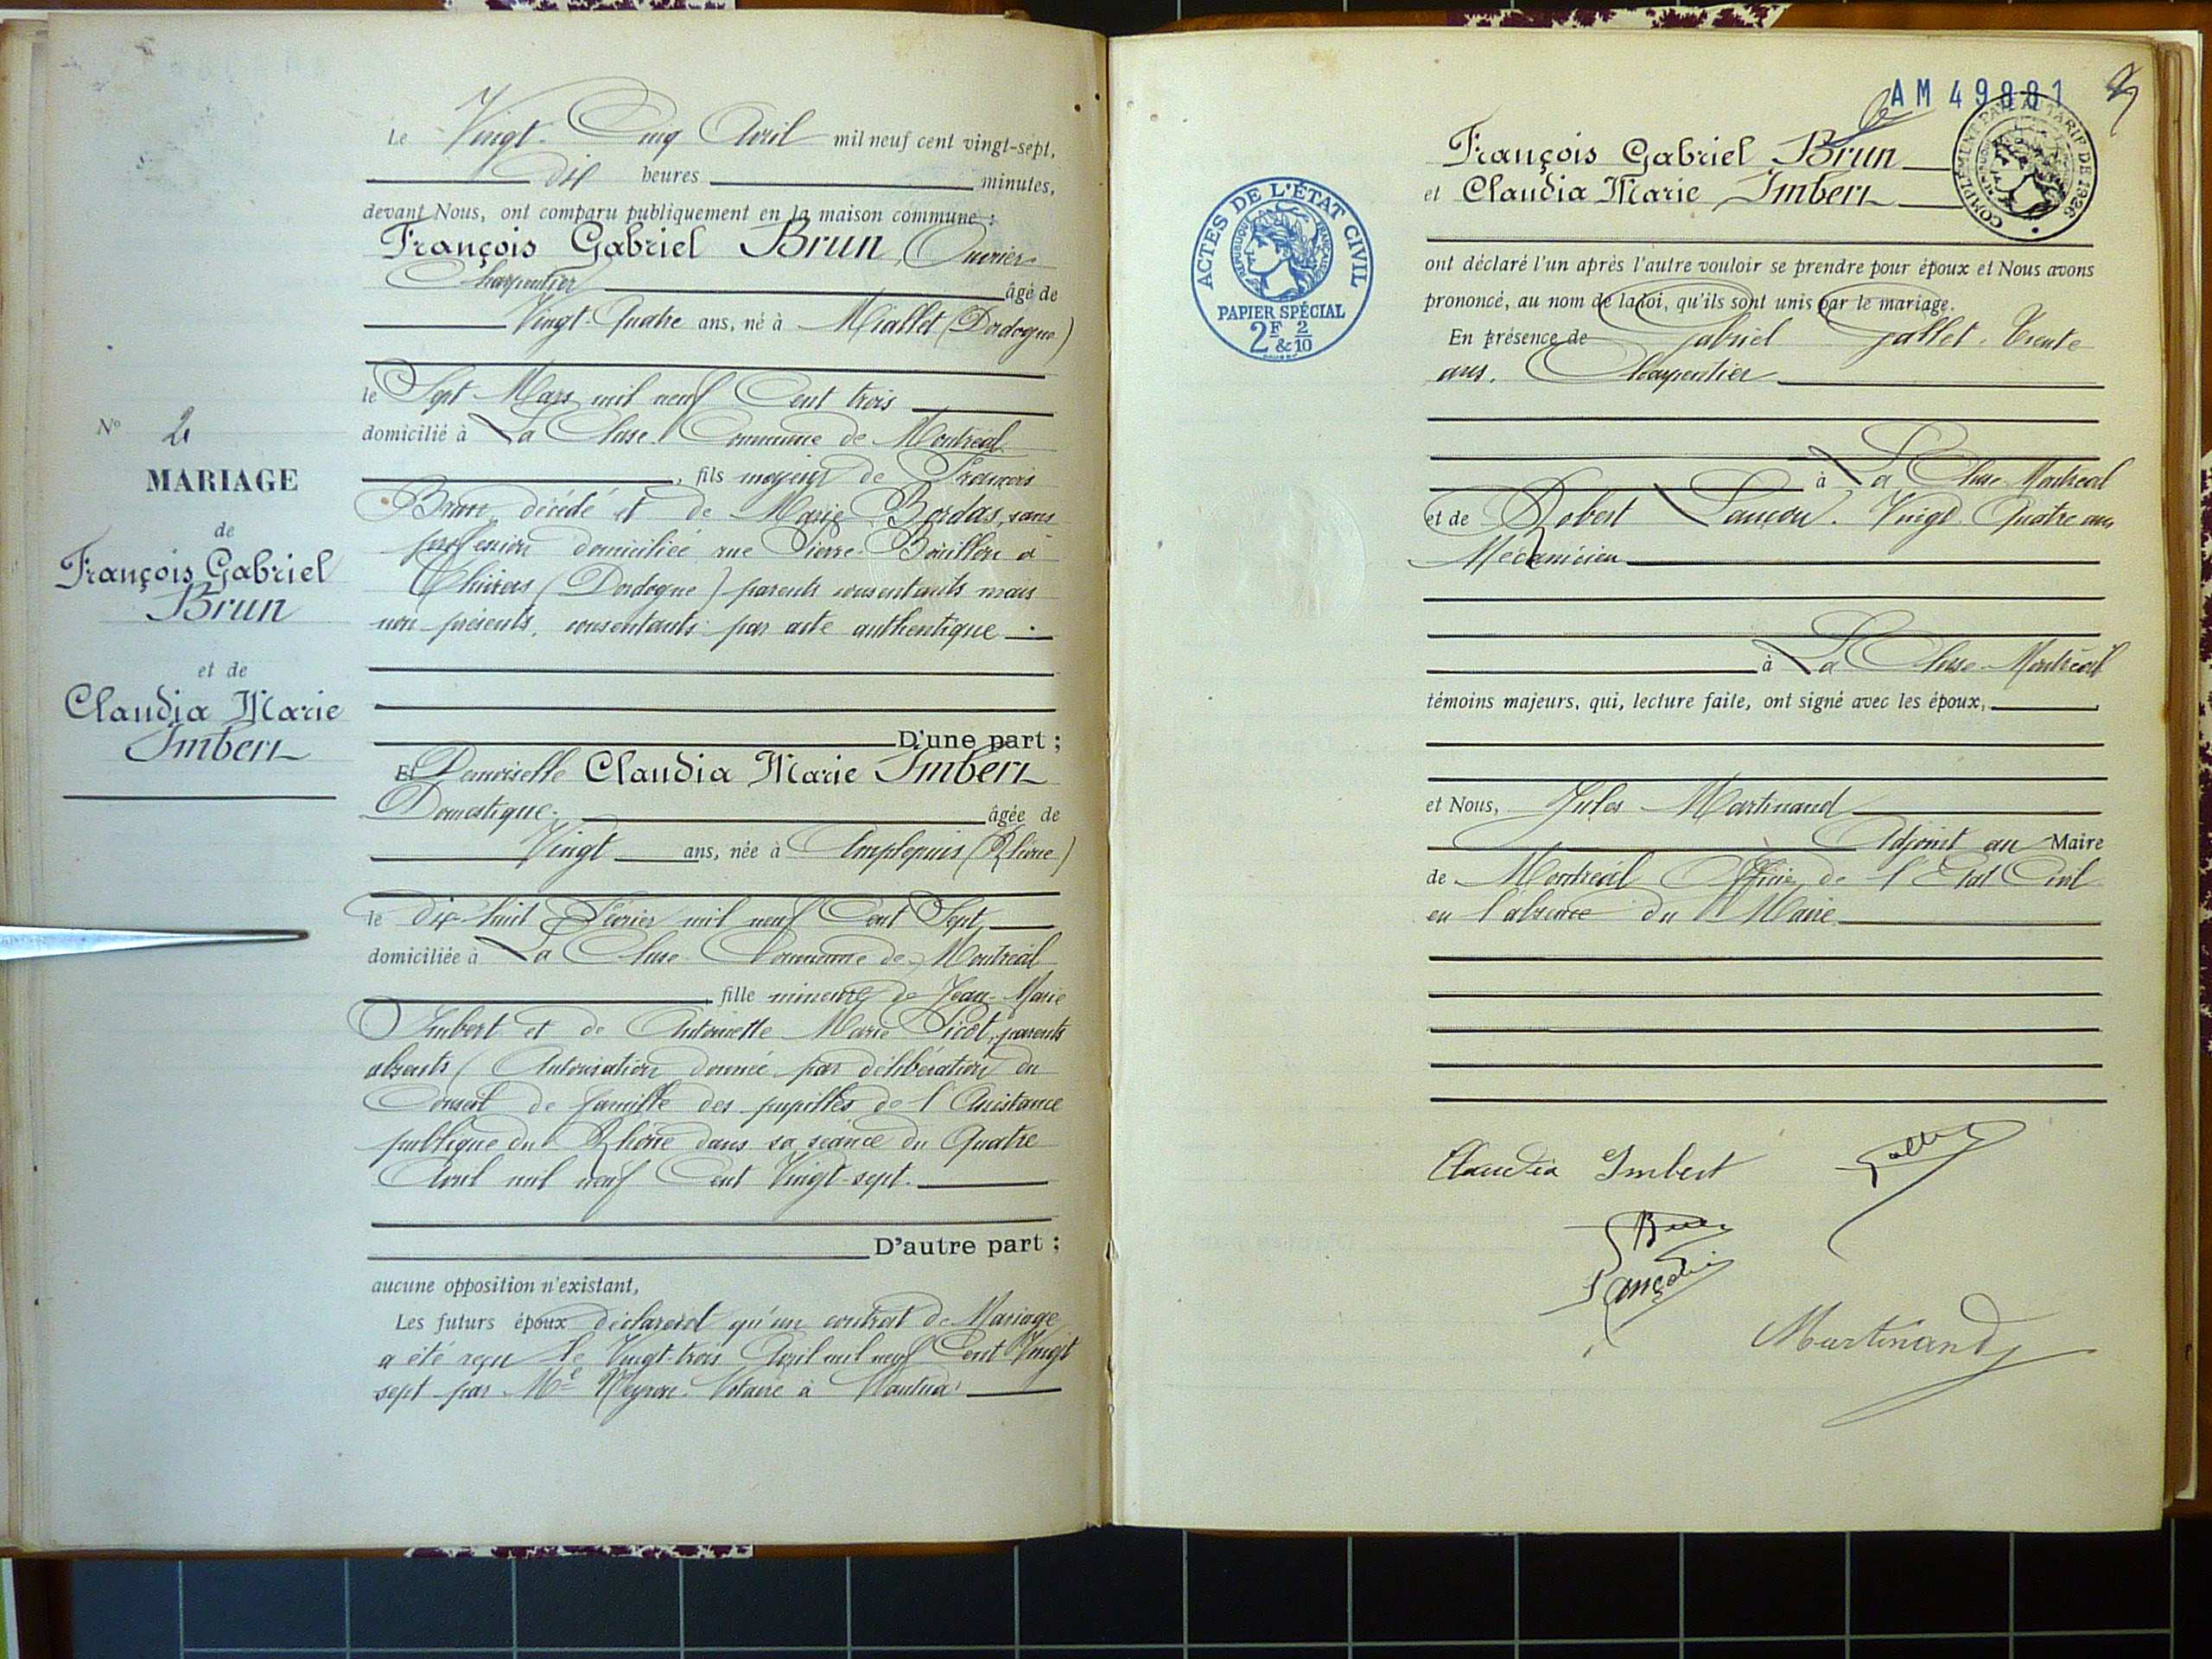 Le Vingt-Cinq Avril mil neuf cent vingt-sept,
dix heures minutes,
devant Nous, ont comparu publiquement en la maison commune :
François Gabriel Brun, Ouvrier
Charpentier âgé de
Vingt-Quatre ans, né à Miallet (Dordogne)
le Sept Mars mil neuf Cent trois
domicilié à La Cluse. Commune de Montréal
, fils majeur de François
Brun décédé et de Marie Bordas, sans
profession domiciliée rue Pierre Bouillon à
Thiviers (Dordogne) parents consentants mais
non présents, consentants par acte authentique
D'une part ;
Et Demoiselle Claudia Marie Imbert
Domestique. âgée de
Vingt ans, née à Amplepuis (Rhône)
le dix-huit Février mil neuf Cent Sept
domiciliée à La Cluse Commune de Montréal
, fille mineure de Jean-Marie
Imbert et de Antoinette Marie Picot, parents
absents (Autorisation donnée par délibération du
Conseil de famille des pupilles de l'Assistance
publique du Rhône dans sa séance du Quatre
Avril mil neuf Cent Vingt-sept.
D'autre part ;
aucune opposition n'existant,
Les futurs époux déclarent qu'un contrat de Mariage
a été reçu le Vingt-trois Avril mil neuf Cent Vingt
sept par Me Neyron Notaire à Nantua
No 2
MARIAGE
de
François Gabriel
Brun
et de
Claudia Marie
Imbert
AM 49881
François Gabriel Brun
et Claudia Marie Imbert
COMPLÉMENT PAYÉ AU TARIF DE 1926
ACTES DE L'ÉTAT CIVIL
RÉPUBLIQUE FRANÇAISE
PAPIER SPÉCIAL
2F & 2/10
ont déclaré l'un après l'autre vouloir se prendre pour époux et Nous avons
prononcé, au nom de la loi, qu'ils sont unis par le mariage.
En présence de Gabriel Gallet. Trente
ans. Charpentier
à La Cluse Montréal
et de Robert Lançon. Vingt Quatre ans
Mécanicien
à La Cluse-Montréal
témoins majeurs, qui, lecture faite, ont signé avec les époux,
et Nous, Jules Martinand
Adjoint au Maire
de Montréal Officier de l'Etat Civil
en l'absence du Maire
Claudia Imbert
Gallet
Brun
Lançon
Martinand